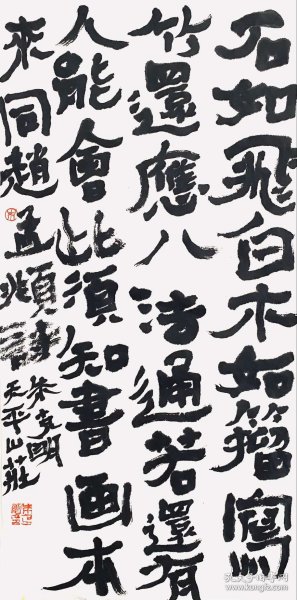 石如飛白木如籀寫
竹還應八法通若還有
人能會此須知書画本
來同趙孟頫詩
天平山莊